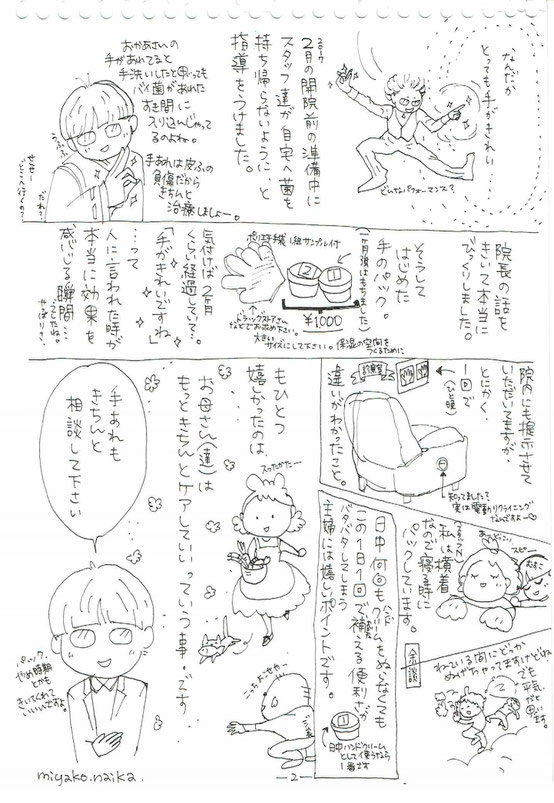 なんだか
とっても手がきれい
どんなパフォーマンス?
2017
2月の開院前の準備中に
スタッフ達が自宅へ菌を
持ち帰らないように、と
指導をうけました。
おかあさんの
手があれてると
手洗いしたと思っても
バイ菌があれた
すき間に
入りこんじゃって
るのよね。
うふふ
手あれは皮ふの
負傷だから
きちんと
治療しましょー。
せんせー
どこへ行くの?
だれ?
院長の話を
きいて本当に
びっくりしました。
そうして
はじめた
手のパック。
(一ヶ月後はもちました)
ポリ手袋1組サンプル付
② ①
¥1,000
ドラッグストアさん
などでお求め下さい。
大きい
サイズにして下さい。保湿の空間を
つくるために
気付けば2ヶ月
くらい経過していて。
「手がきれいですね」
…って
人に言われた時が
本当に効果を
感じる瞬間…
でしたね。
やっぱりさ。
院内にも提示させて
いただいてますが、
とにかく、
1回で
(ひと晩)
違いがわかったこと。
診察室
知ってました?
実は電動リクライニング
なんですよー♡
(スタッフN)
私は横着
なので寝る時に
パックしています。
スピー
おすこ
余談
ねている間にどっか
ぬげちゃってますけどね
でも
平気
だと
思い
ます。
日中何回もクリームをぬらなくても
この1日1回で補える便利さが
バタバタしてしまう
主婦には嬉しいポイントです。
①
日中ハンドクリーム
として使うなら
1番です
もひとつ
嬉しかったのは、
お母さん(達)は
もっときちんとケアしていいっていう事。です
スッたかたー
こっちおせやー
手あれも
きちんと
相談して下さい
パック、
やめ時期
とかも
きいてくれて
いいいですよ
miyako.naika.
—2—